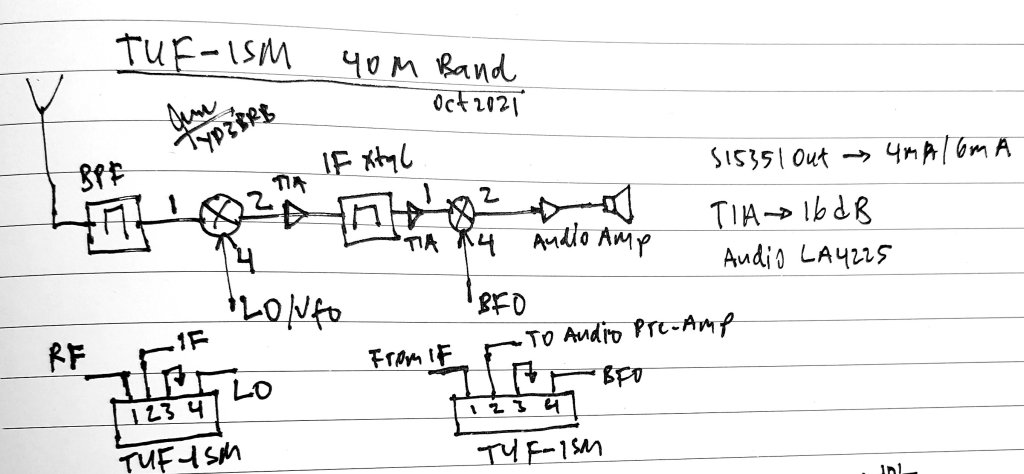 TUF-1SM 40M Band
Oct 2021
YD3BRB
BPF
1
2
TIA
IF Xtal
1
2
TIA
4
4
Audio Amp
LO/Vfo
BFO
SI5351 Out → 4mA/6mA
TIA → 16dB
Audio LA4225
RF
IF
LO
1 2 3 4
TUF-1SM
From IF
TO Audio Pre-Amp
BFO
1 2 3 4
TUF-1SM